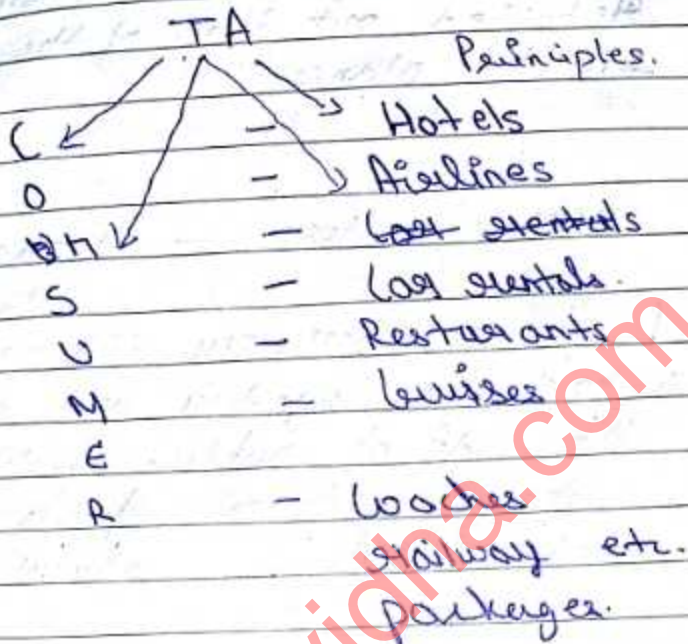 TA
Principles.
C - Hotels
O - Airlines
N - Car rentals
S - Car rentals.
U - Resturants
M - Cruises
E
R - Coaches
railway etc.
packages.
vidha.com